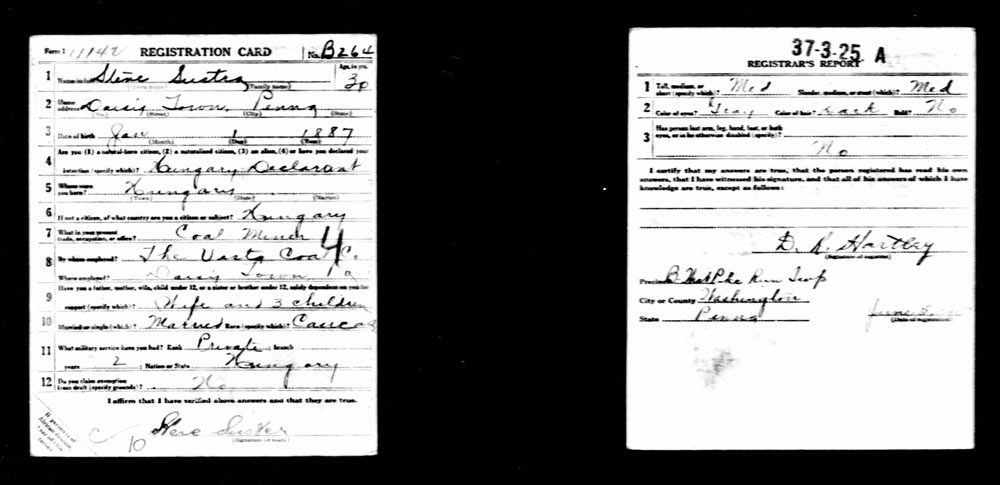 Form 1 11142 REGISTRATION CARD No. B264
1 Name in full Steve Sustra Age, in yrs. 30
(Given name) (Family name)
2 Home address Daisis Town, Penna
(No.) (Street) (City) (State)
3 Date of birth Jan 1 1887
(Month) (Day) (Year)
Are you (1) a natural-born citizen, (2) a naturalized citizen, (3) an alien, (4) or have you declared your
4 intention (specify which)? Hungary Declarant
5 Where were you born? Hungary
(Town) (State) (Nation)
6 If not a citizen, of what country are you a citizen or subject? Hungary
7 What is your present trade, occupation, or office? Coal Miner
4
8 By whom employed? The Vasta Coal Co.
Where employed? Daisis Town Pa
Have you a father, mother, wife, child under 12, or a sister or brother under 12, solely dependent on you for
9 support (specify which)? Wife and 3 children
10 Married or single (which)? Married Race (specify which)? Caucas
11 What military service have you had? Rank Private ; branch
years 2 ; Nation or State Hungary
12 Do you claim exemption from draft (specify grounds)? No
I affirm that I have verified above answers and that they are true.
Steve Suster
(Signature or mark)
10
If person is of African descent,
37-3-25 A
REGISTRAR'S REPORT
1 Tall, medium, or short (specify which)? Med Slender, medium, or stout (which)? Med
2 Color of eyes? Gray Color of hair? Dark Bald? No
3 Has person lost arm, leg, hand, foot, or both
eyes, or is he otherwise disabled (specify)?
No
I certify that my answers are true, that the person registered has read his own
answers, that I have witnessed his signature, and that all of his answers of which I have
knowledge are true, except as follows:
D. R. Hartley
(Signature of registrar)
Precinct B West Pike Run Twp
City or County Washington
State Penna
June 5,
(Date of registration)